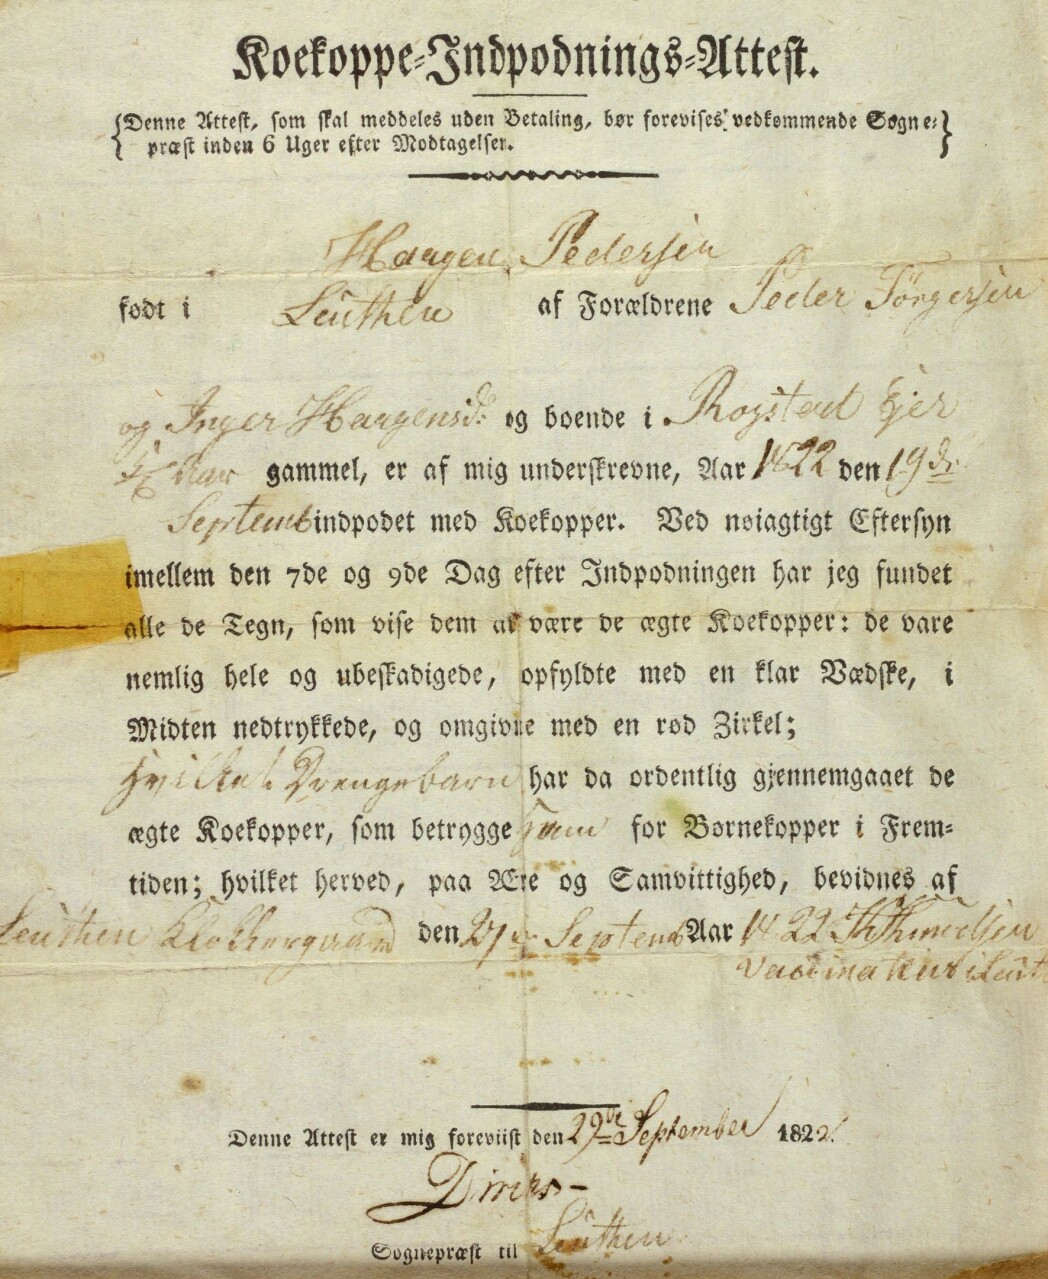 Koekoppe-Indpodnings-Attest.
{Denne Attest, som skal meddeles uden Betaling, bør forevises vedkommende Sogne-
præst inden 6 Uger efter Modtagelsen.}
Haagen Pedersen
født i Leuthen af Forældrene Peder Törgersen
og Inger Haagensd: og boende i Rogstad Ejer
gammel, er af mig underskrevne, Aar 1822 den 19de
Septemb indpodet med Koekopper. Ved nøiagtigt Eftersyn
imellem den 7de og 9de Dag efter Indpodningen har jeg fundet
alle de Tegn, som vise dem at være de ægte Koekopper: de vare
nemlig hele og ubeskadigede, opfyldte med en klar Vædske, i
Midten nedtrykkede, og omgivne med en rød Zirkel;
hvilket Drengebarn har da ordentlig gjennemgaaet de
ægte Koekopper, som betrygge ham for Børnekopper i Frem-
tiden; hvilket herved, paa Ære og Samvittighed, bevidnes af
Leuthen Klokkergaard den 27de Septemb Aar 1822
Vaccinateur i Leuth
Denne Attest er mig foreviist den 29de September 1822.
Sognepræst til Leuthen